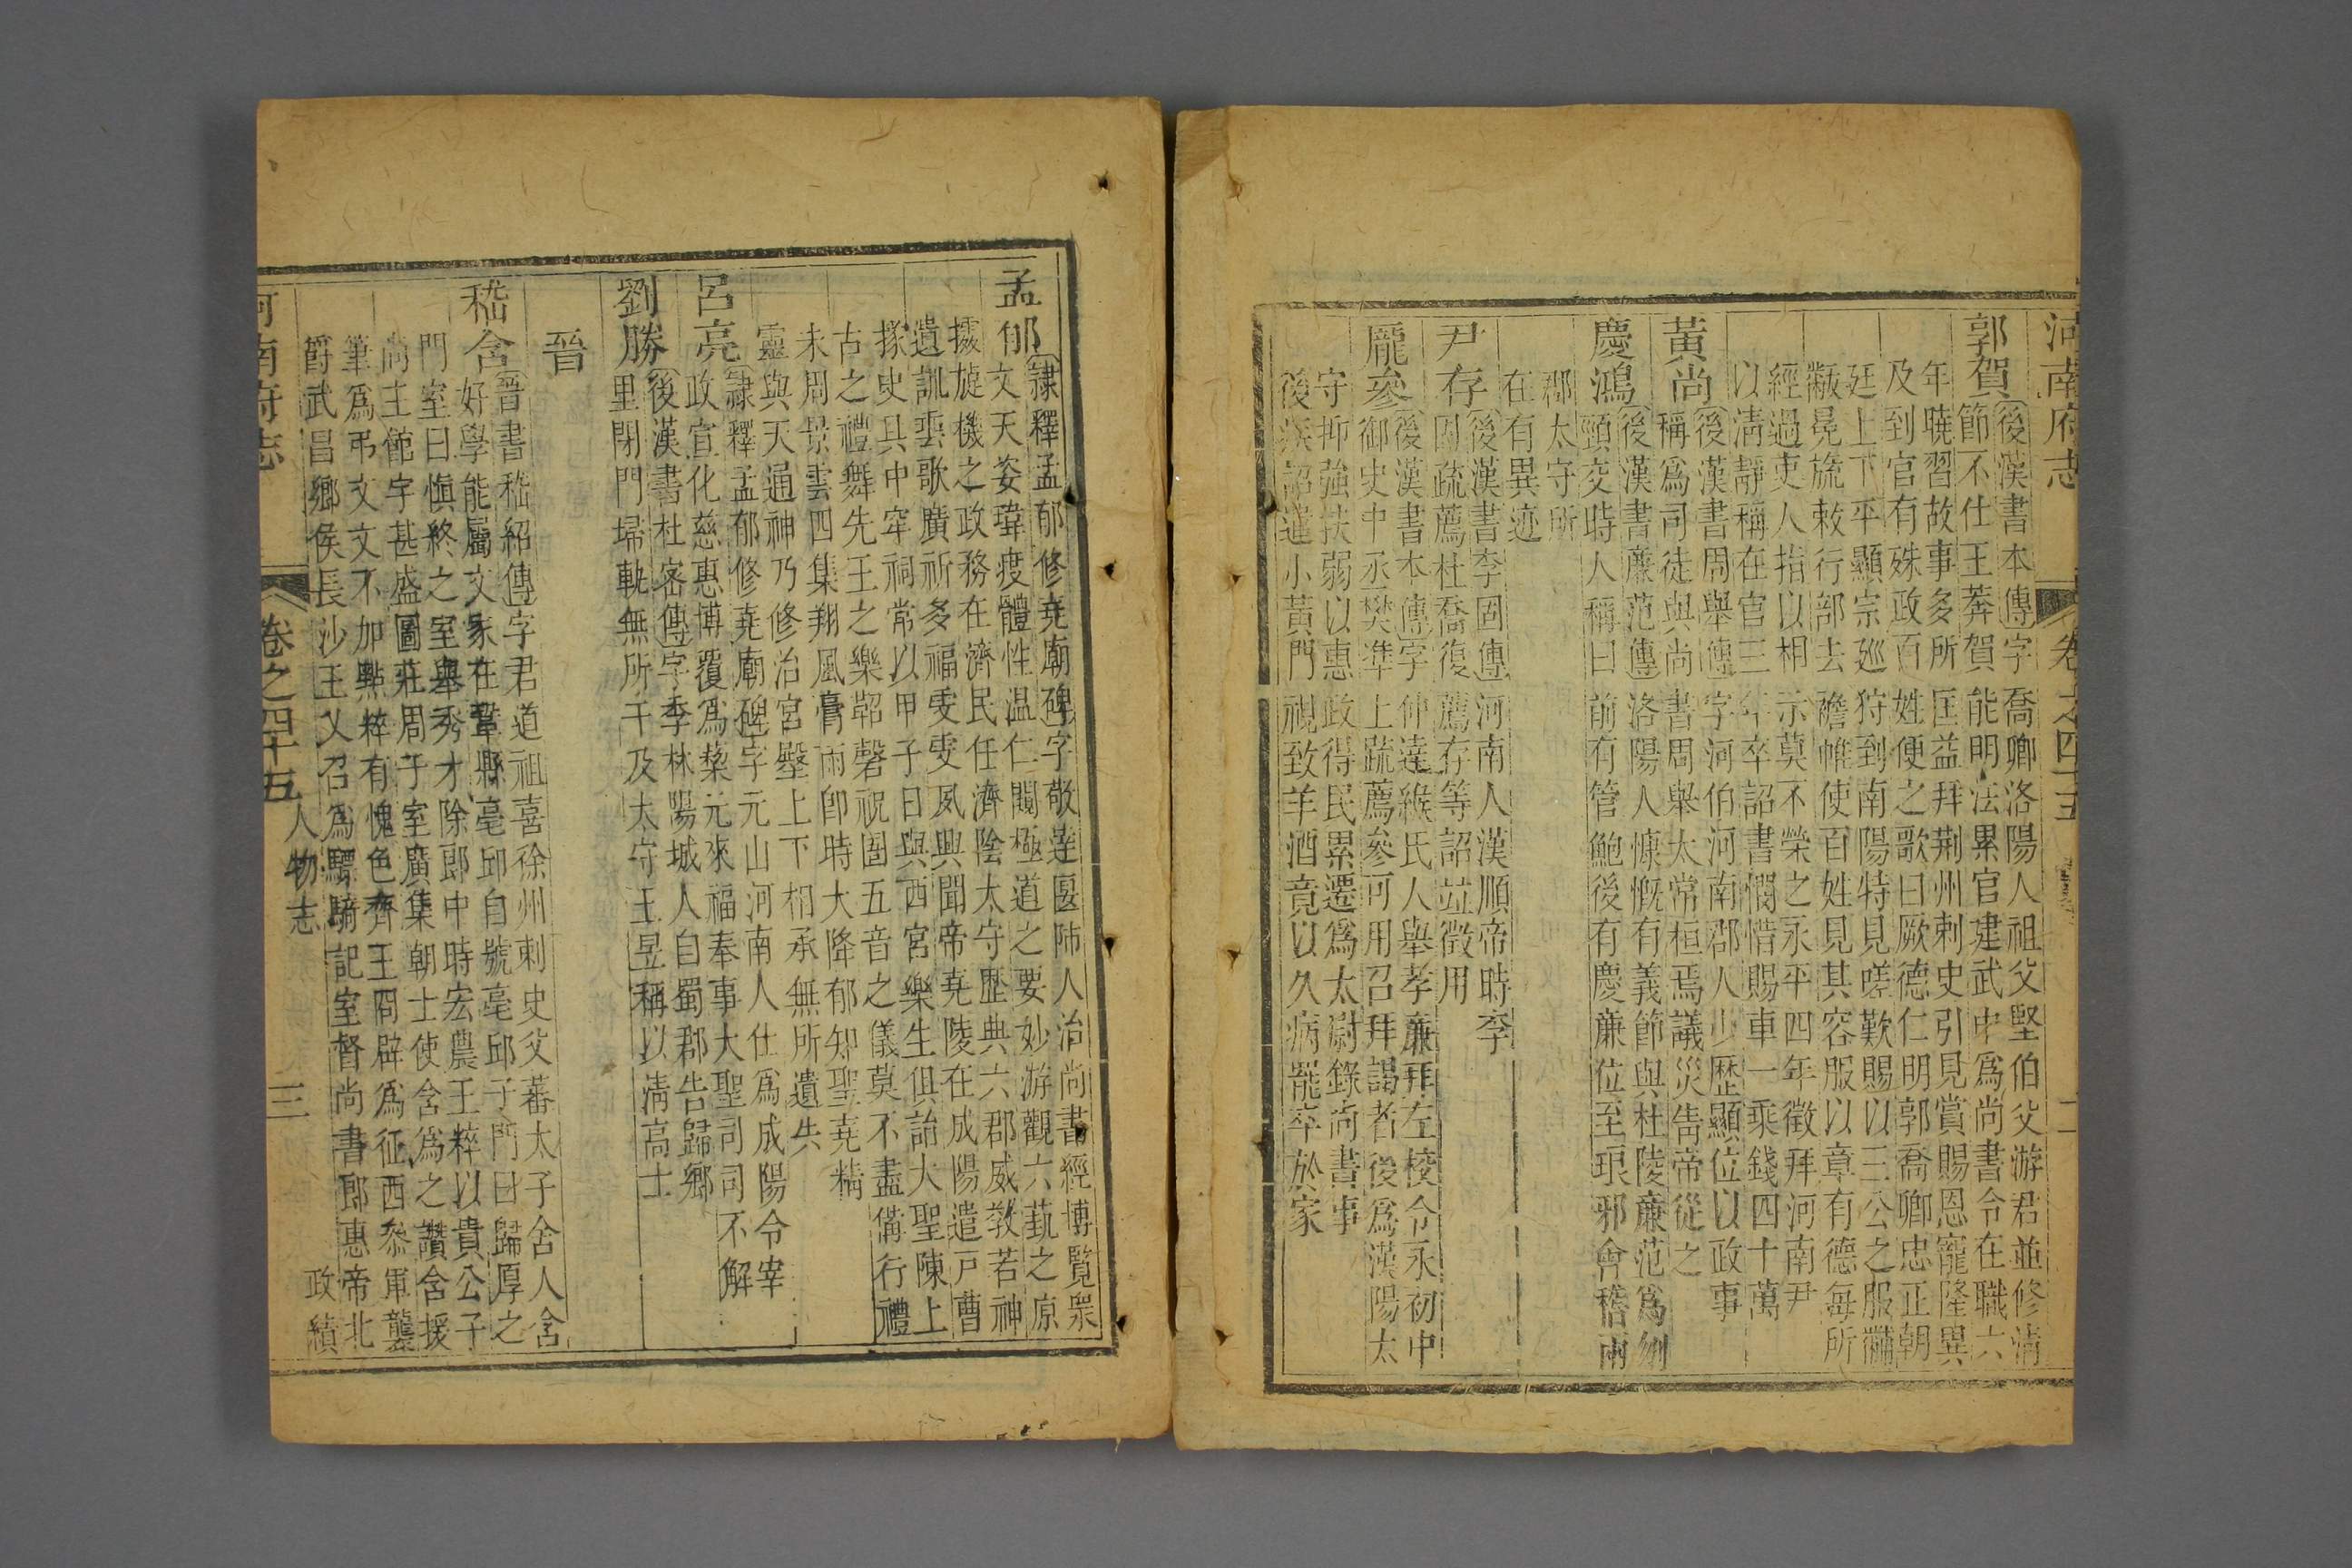 河南府志 卷之四十五 二
郭賀
後漢書本傳字喬卿洛陽人祖父堅伯父游君並修清
節不仕王莽賀能明法累官建武中爲尚書令在職六
年曉習故事多所匡益拜荆州刺史引見賞賜恩寵隆異
及到官有殊政百姓便之歌曰厥德仁明郭喬卿忠正朝
廷上下平顯宗廵狩到南陽特見嗟歎賜以三公之服黼
黻冕旒敕行部去襜帷使百姓見其容服以章有德每所
經過吏人指以相示莫不榮之永平四年徵拜河南尹
以清靜稱在官三年卒詔書憫惜賜車一乘錢四十萬
黃尚
後漢書周舉傳字河伯河南郡人少歷顯位以政事
稱爲司徒與尚書周舉太常桓焉議災眚帝從之
慶鴻
後漢書廉范傳洛陽人慷慨有義節與杜陵廉范爲刎
頸交時人稱曰前有管鮑後有慶廉位至琅邪會稽兩
郡太守所
在有異迹
尹存
後漢書李固傳河南人漢順帝時李
固疏薦杜喬復薦存等詔竝徵用
龐參
後漢書本傳字仲達緱氏人舉孝廉拜左校令永初中
御史中丞樊準上疏薦參可用召拜謁者後爲漢陽太
守抑強扶弱以惠政得民累遷爲太尉錄尚書事
後 詔遣小黃門視致羊酒竟以久病罷卒於家
孟郁
隸釋孟郁修堯廟碑字敬達匽師人治尚書經博覽衆
文天姿瑋度體性温仁閫極道之要妙游觀六蓺之原
據旋機之政務在濟民任濟陰太守歷典六郡威教若神
遺訓雲歌廣祈多福夙興聞帝堯陵在成陽遣戸曹
掾史具中牢祠常以甲子日與西宮樂生俱詣大聖陳上
古之禮舞先王之樂鞀磬祝圄五音之儀莫不盡備行禮
未周景雲四集翔風膏雨卽時大降郁知聖堯精
靈與天通神乃修治宮殿上下相承無所遺失
呂亮
隸釋孟郁修堯廟碑字元山河南人仕爲成陽令宰
政宣化慈惠博覆爲棃元來福奉事大聖司司不解
劉勝
後漢書杜密傳字季林陽城人自蜀郡告歸鄉
里閉門埽軌無所干及太守王昱稱以清高士
晉
嵇含
晉書嵇紹傳字君道祖喜徐州刺史父蕃太子舍人含
好學能屬文家在鞏縣亳邱自號亳邱子門曰歸厚之
門室曰愼終之室舉秀才除郎中時宏農王粹以貴公子
尚主館宇甚盛圖莊周于室廣集朝士使含爲之讚含援
筆爲弔文文不加點粹有愧色齊王冏辟爲征西叅軍襲
爵武昌鄉侯長沙王乂召爲驃騎記室督尚書郎惠帝北
河南府志 卷之四十五 人物志 政績 三